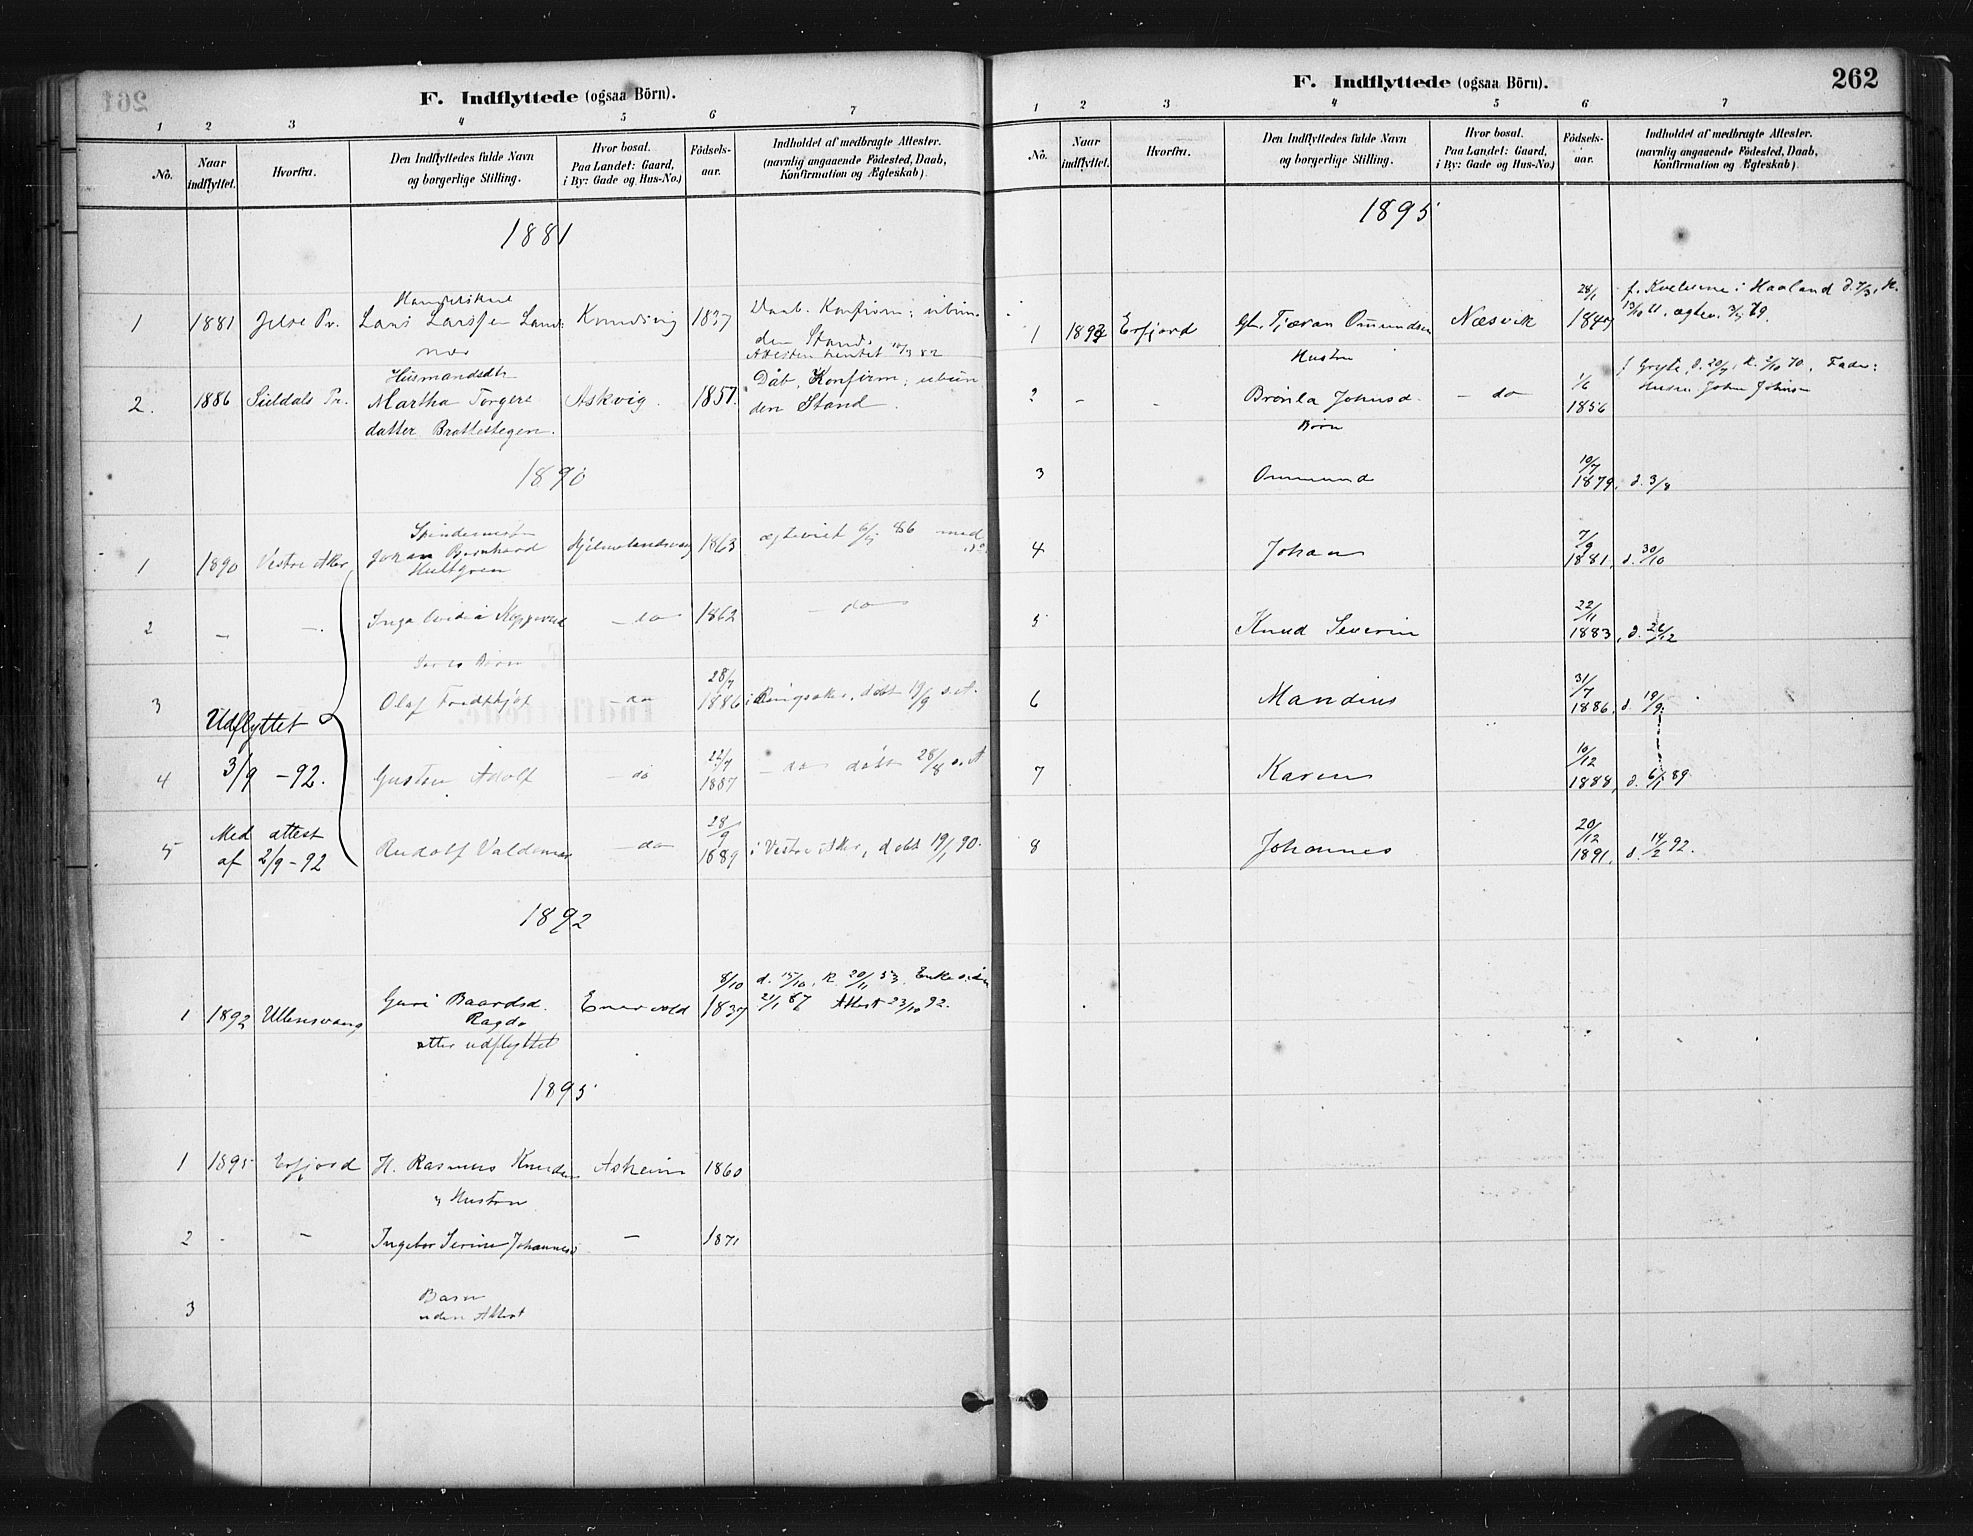 F. Indflyttede (ogsaa Börn).
1 2 3 4 5 6 7
No. Naar indflyttet. Hvorfra. Den Indflyttedes fulde Navn og borgerlige Stilling. Hvor bosat. Paa Landet: Gaard, i By: Gade og Hus-No.) Födsels-aar. Indholdet af medbragte Attester. (navnlig angaaende Födested, Daab, Konfirmation og Ægteskab).
1881
1 1881 Jelse Pr. Lars Larssen 1837 Daab. Konfirm; ubun-
den Stand.
Attesten hentet
Husmandsdtr
2. 1886 Suldals Pr. Martha Torgers Askvig. 1857. Dåb, Konfirm; ubun-
datter Brattestegen. den Stand.
1890
1 1890 Vestre Aker Johan Bernhard Hjelmelandsvåg 1863 ægteviet 6/5 86 med
Hultgren
2 - - Inga - do 1862 - do
Børn
3 Olaf - do 28/7 1886 i Ringsaker, døbt 19/9 s. A.
Udflyttet
3/9 - 92.
4 Gustav Adolf - do 22/7 1887 - do døbt 28/8 s. A
Med attest
af 2/9 - 92
5 Rudolf Valdemar - do 28/9 1889 i Vestre Aker, døbt 19/1 90.
1892
1 1892 Ullensvang Guri Baardsd. 8/10 1837 d. 15/10, K. 20/11 53, Enke siden
21/1 87 Attest 23/10 92.
Ragde
atter udflyttet
1895
1 1895 Erfjord H. Rasmus Knudsen Askeim 1860
Hustru
2 - - Ingebor Serine Johannesd - 1871
3 Barn
uden Attest
F. Indflyttede (ogsaa Börn).
262
1 2 3 4 5 6 7
No. Naar indflyttet. Hvorfra. Den Indflyttedes fulde Navn og borgerlige Stilling. Hvor bosat. Paa Landet: Gaard, i By: Gade og Hus-No.) Födsels-aar. Indholdet af medbragte Attester. (navnlig angaaende Födested, Daab, Konfirmation og Ægteskab).
1895
1 Erfjord Tjæran Ommundsen Næsvik 28/1 f. i Haaland d. 7/3, K.
Hustru
2 - - Johnsd. - do 1/6 1856
Børn
3 Ommund 10/7 1879, d. 3/8
4 Johan 7/9 1881, d. 30/10
5 Knud Severin 22/11 1883, d. 26/12
6 Mandius 31/7 1886, d. 19/9
7 Karen 10/12 1888, d. 6/1 89.
8 Johannes 20/12 1891, d. 14/2 92.